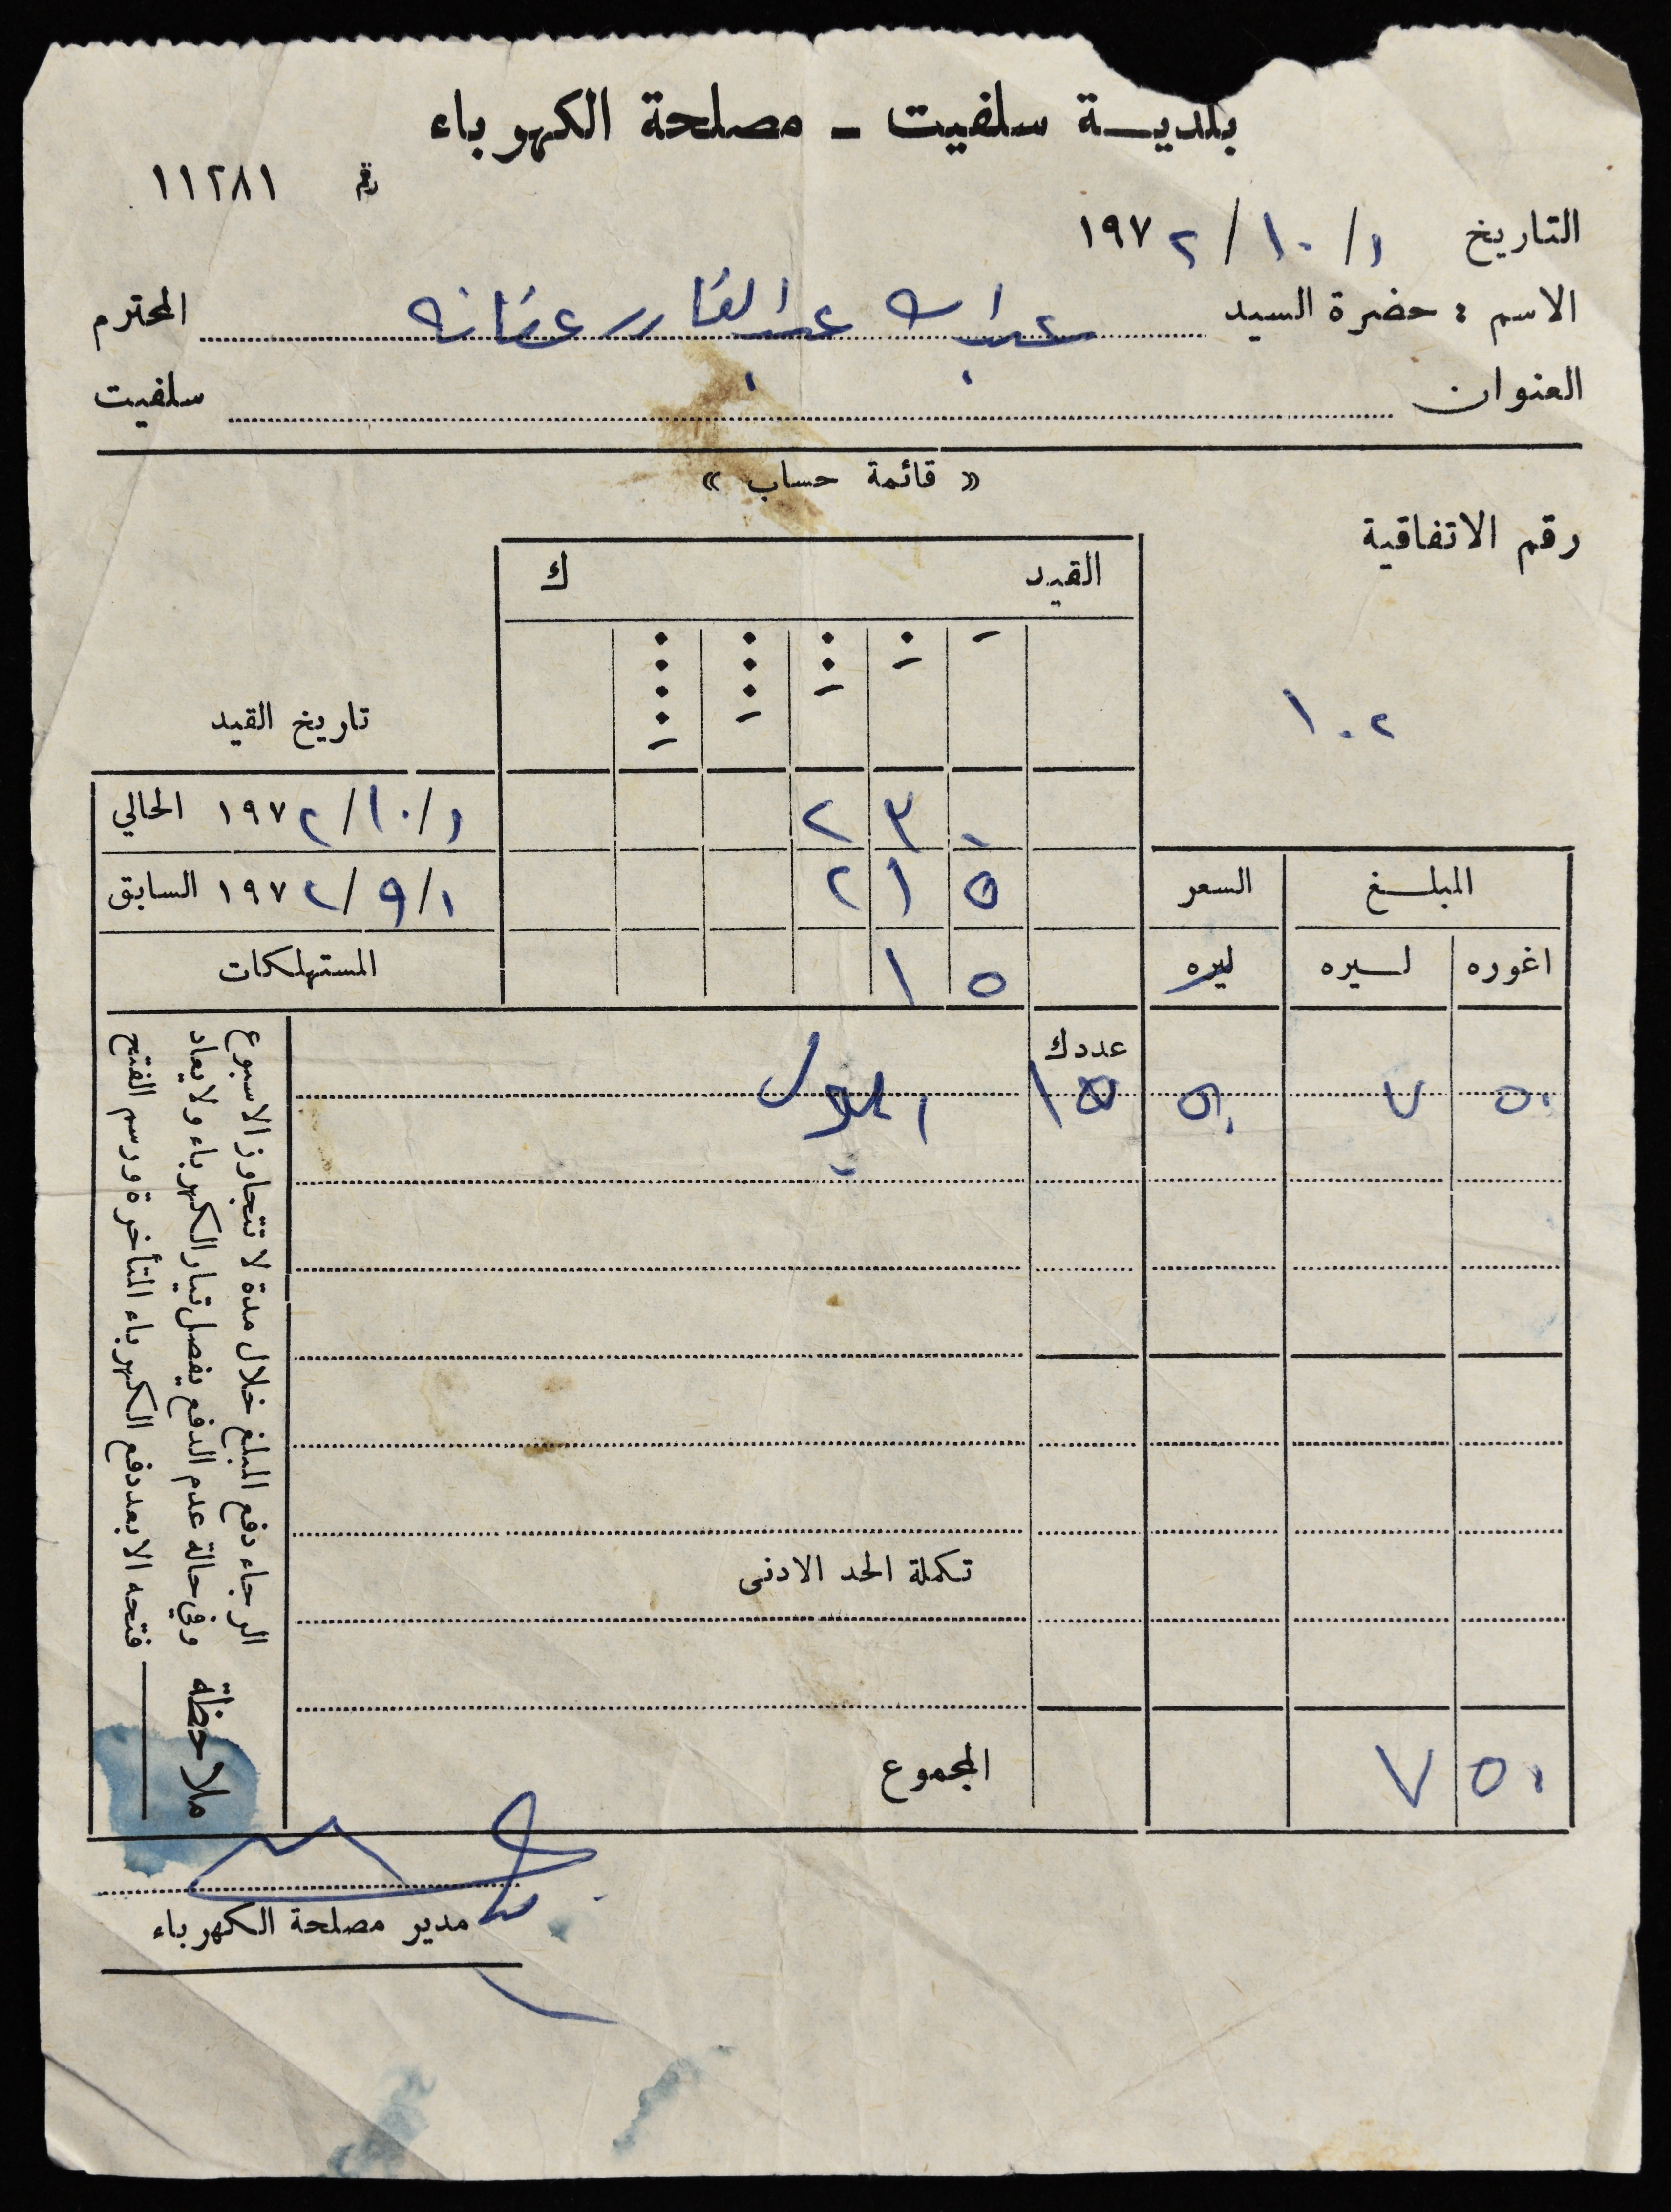 بلدية سلفيت - مصلحة الكهرباء
رقم ١١٢٨١
التاريخ ١/١٠/١٩٧٢
الاسم : حضرة السيد عبدالله عبدالقادر عفانه المحترم
العنوان سلفيت
« قائمة حساب »
رقم الاتفاقية
١٠٢
القيد ك
١ ١٠ ١٠٠ ١٠٠٠ ١٠٠٠٠
تاريخ القيد
٢٣٠ ١/١٠/١٩٧٢ الحالي
٢١٥ ١/٩/١٩٧٢ السابق
١٥ المستهلكات
المبلغ السعر
اغوره ليره ليره
عدد ك
٥٠ ٧ ٥٠ ١٥ ايلول
تكملة الحد الادنى
المجموع
٥٠ ٧
ملاحظة
الرجاء دفع المبلغ خلال مدة لا تتجاوز الاسبوع
وفي حالة عدم الدفع يفصل تيار الكهرباء ولا يعاد
فتحه الا بعد دفع الكهرباء المتأخرة ورسم الفتح
مدير مصلحة الكهرباء